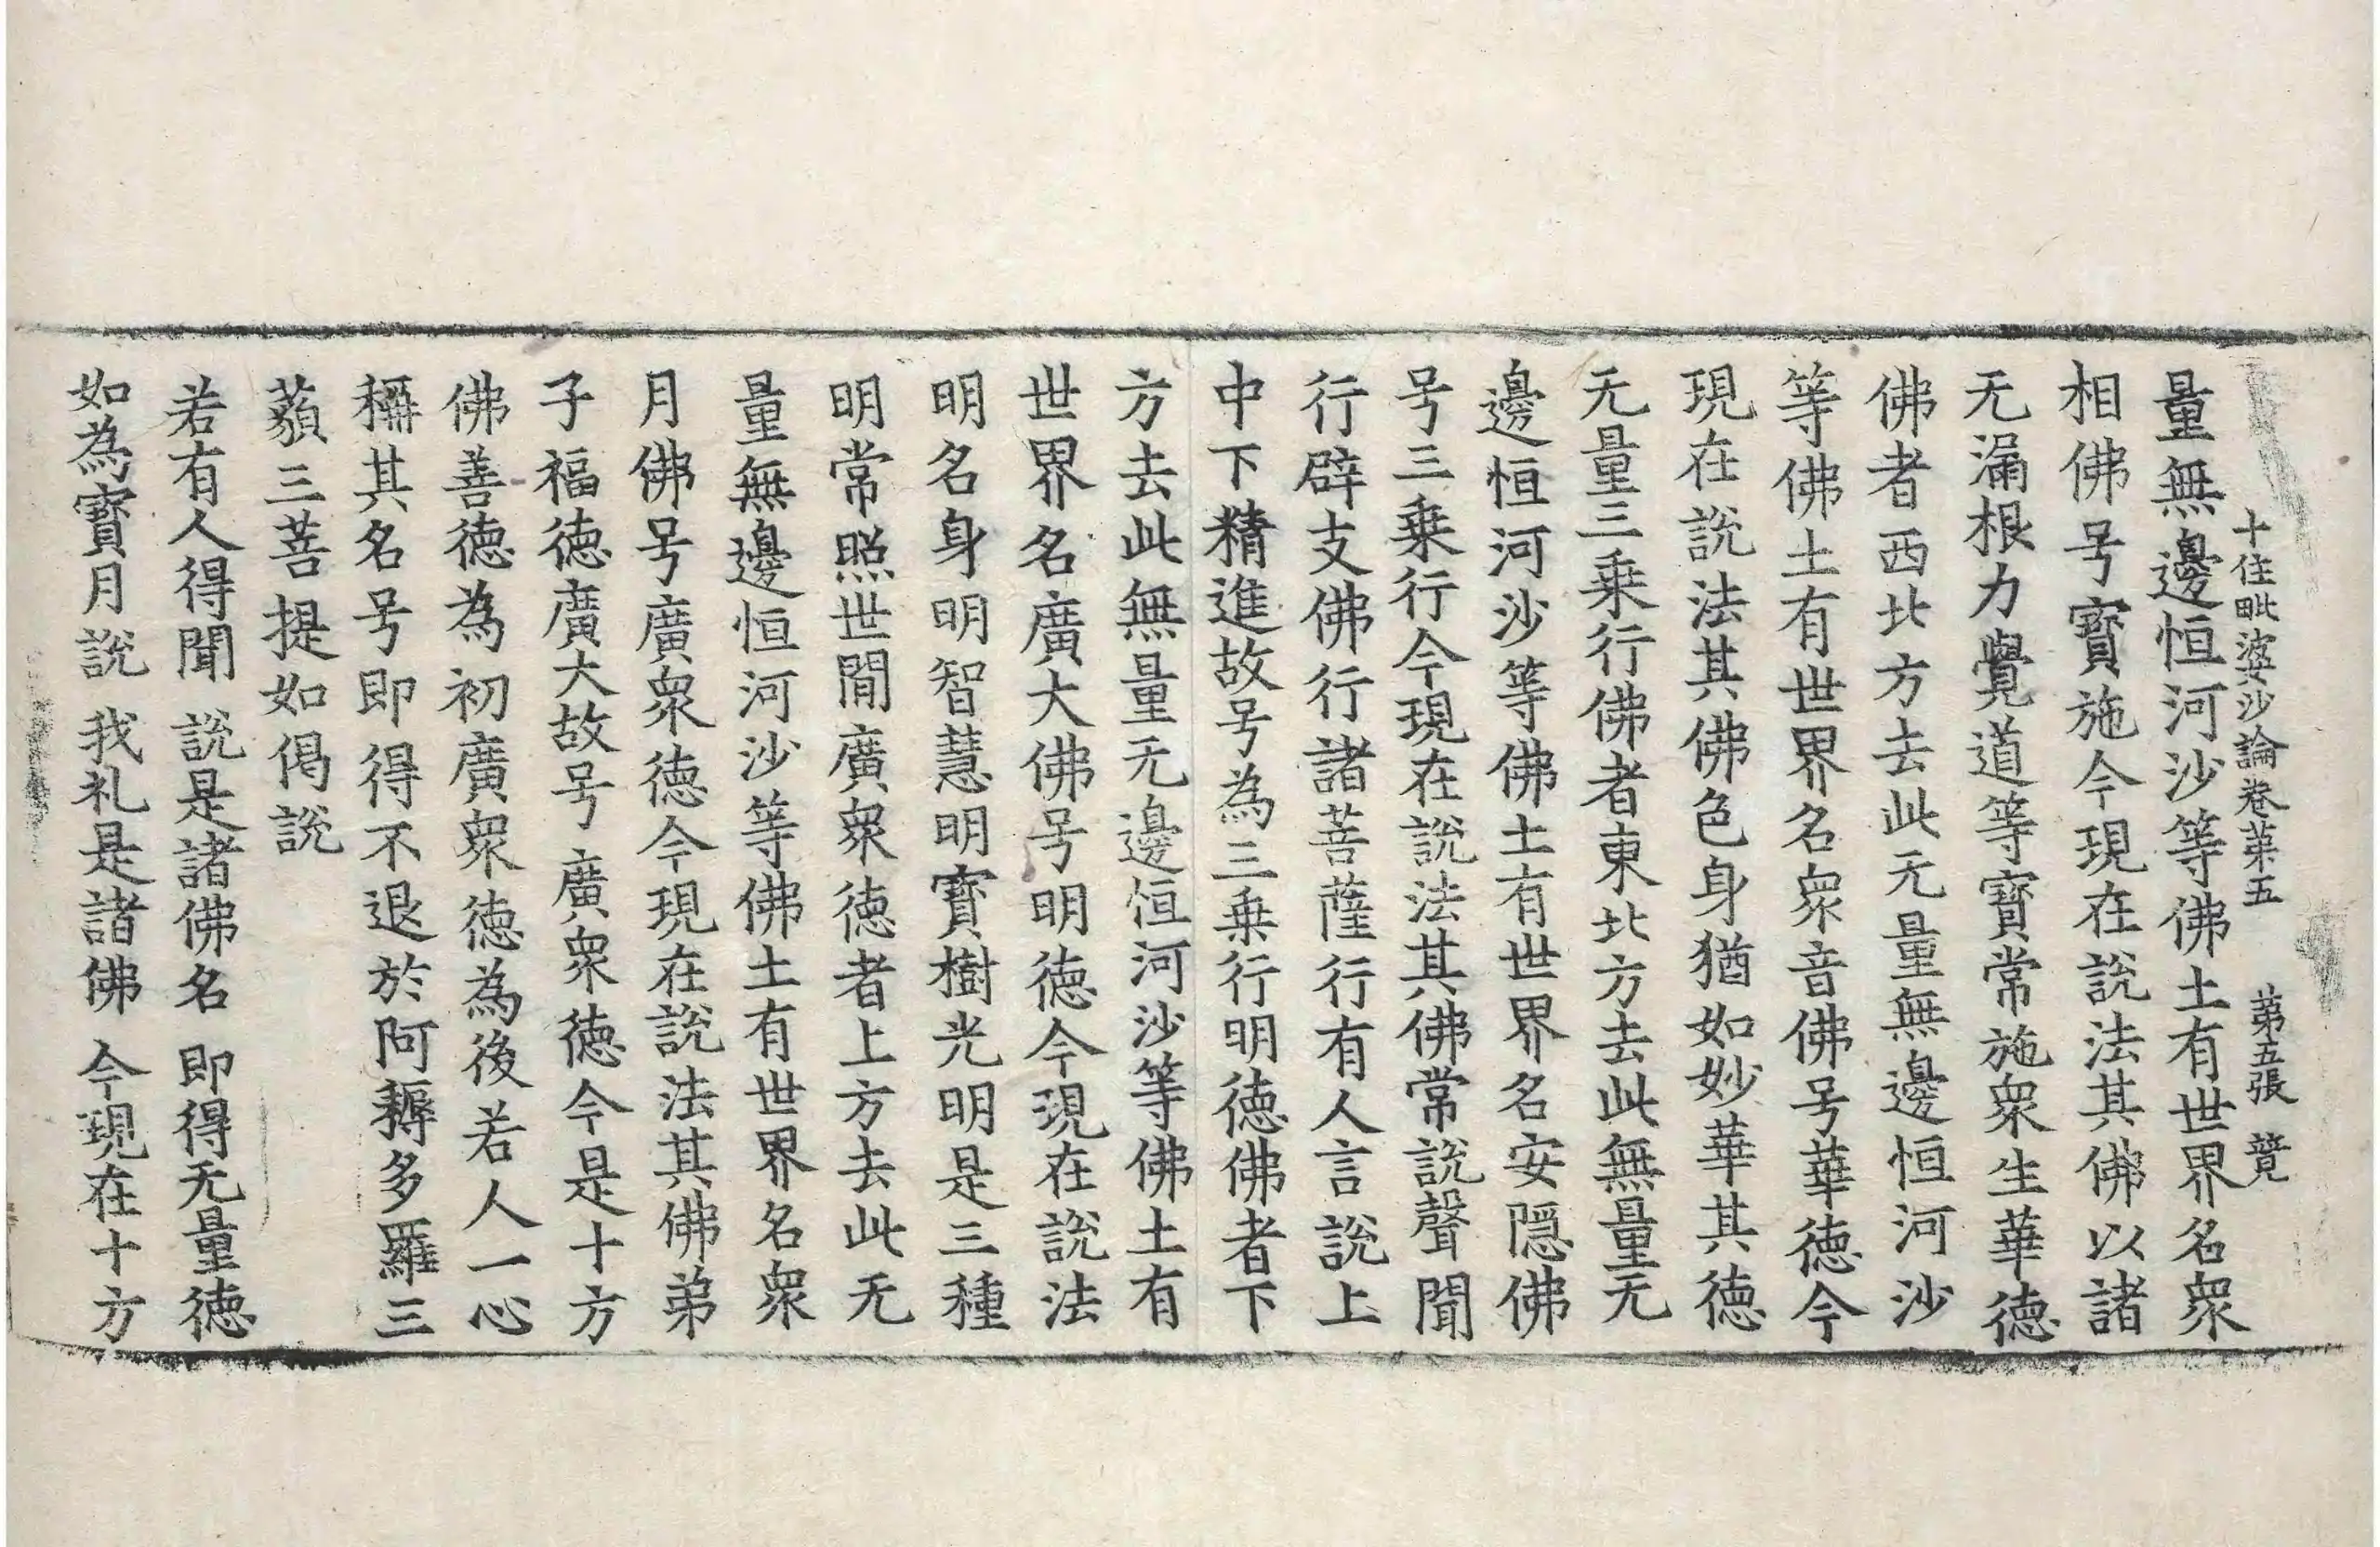 十住毗婆沙論卷苐五　苐五張　競
量無邊恒河沙等佛土有世界名衆
相佛号寶施今現在說法其佛以諸
无漏根力覺道等寶常施衆生華德
佛者西北方去此无量無邊恒河沙
等佛土有世界名衆音佛号華德今
現在說法其佛色身猶如妙華其德
无量三乗行佛者東北方去此無量无
邊恒河沙等佛土有世界名安隱佛
号三乗行今現在說法其佛常說聲聞
行辟支佛行諸菩薩行有人言說上
中下精進故号為三乗行明德佛者下
方去此無量无邊恒河沙等佛土有
世界名廣大佛号明德今現在說法
明名身明智慧明寶樹光明是三種
明常照世間廣衆德者上方去此无
量無邊恒河沙等佛土有世界名衆
月佛号廣衆德今現在說法其佛弟
子福德廣大故号廣衆德今是十方
佛善德為初廣衆德為後若人一心
稱其名号即得不退於阿耨多羅三
藐三菩提如偈說
若有人得聞　說是諸佛名　即得无量德
如為寶月說　我礼是諸佛　今現在十方